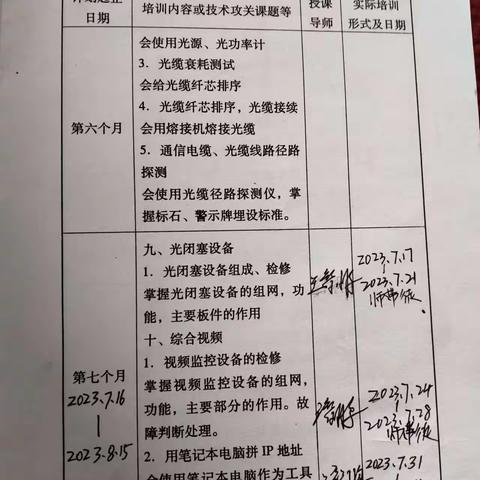 计划起止
日期
培训内容或技术攻关课题等
授课
导师
实际培训
形式及日期
第六个月
会使用光源、光功率计
3. 光缆衰耗测试
会给光缆纤芯排序
4. 光缆纤芯排序，光缆接续
会用熔接机熔接光缆
5. 通信电缆、光缆线路径路
探测
会使用光缆径路探测仪，掌
握标石、警示牌埋设标准。
第七个月
2023.7.16
|
2023.8.15
九、光闭塞设备
1. 光闭塞设备组成、检修
掌握光闭塞设备的组网，功
能，主要板件的作用
十、综合视频
1. 视频监控设备的检修
掌握视频监控设备的组网，
功能，主要部分的作用。故
障判断处理。
2. 用笔记本电脑拼 IP 地址
会使用笔记本电脑作为工具
2023.7.17
|
2023.7.21
师带徒
2023.7.24
|
2023.7.28
师带徒
2023.7.31